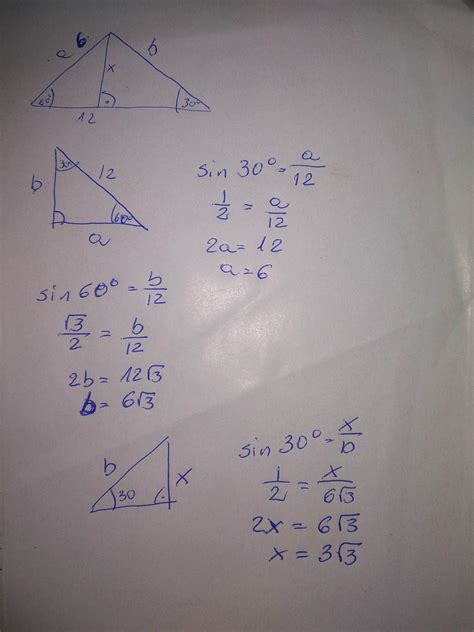 a 6 b
x
60° 30°
12
30° 12
b
60°
a
sin 30° = a/12
1/2 = a/12
2a = 12
a = 6
sin 60° = b/12
√3/2 = b/12
2b = 12√3
b = 6√3
b x
30
sin 30° = x/b
1/2 = x/6√3
2x = 6√3
x = 3√3